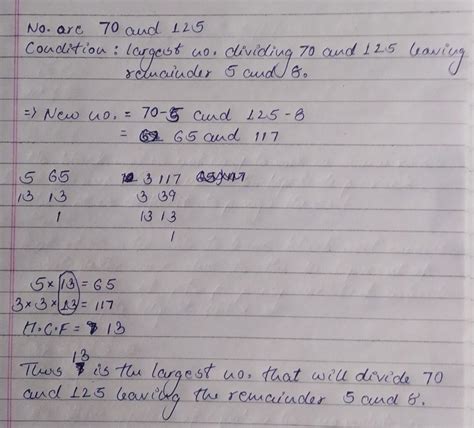 No. are 70 and 125
Condition : largest no. dividing 70 and 125 leaving
remainder 5 and 8.
=> New no. = 70-5 and 125-8
= 65 and 117
5 65 3 117
13 13 3 39
1 13 13
1
5 × 13 = 65
3 × 3 × 13 = 117
H.C.F = 13
Thus 13 is the largest no. that will divide 70
and 125 leaving the remainder 5 and 8.